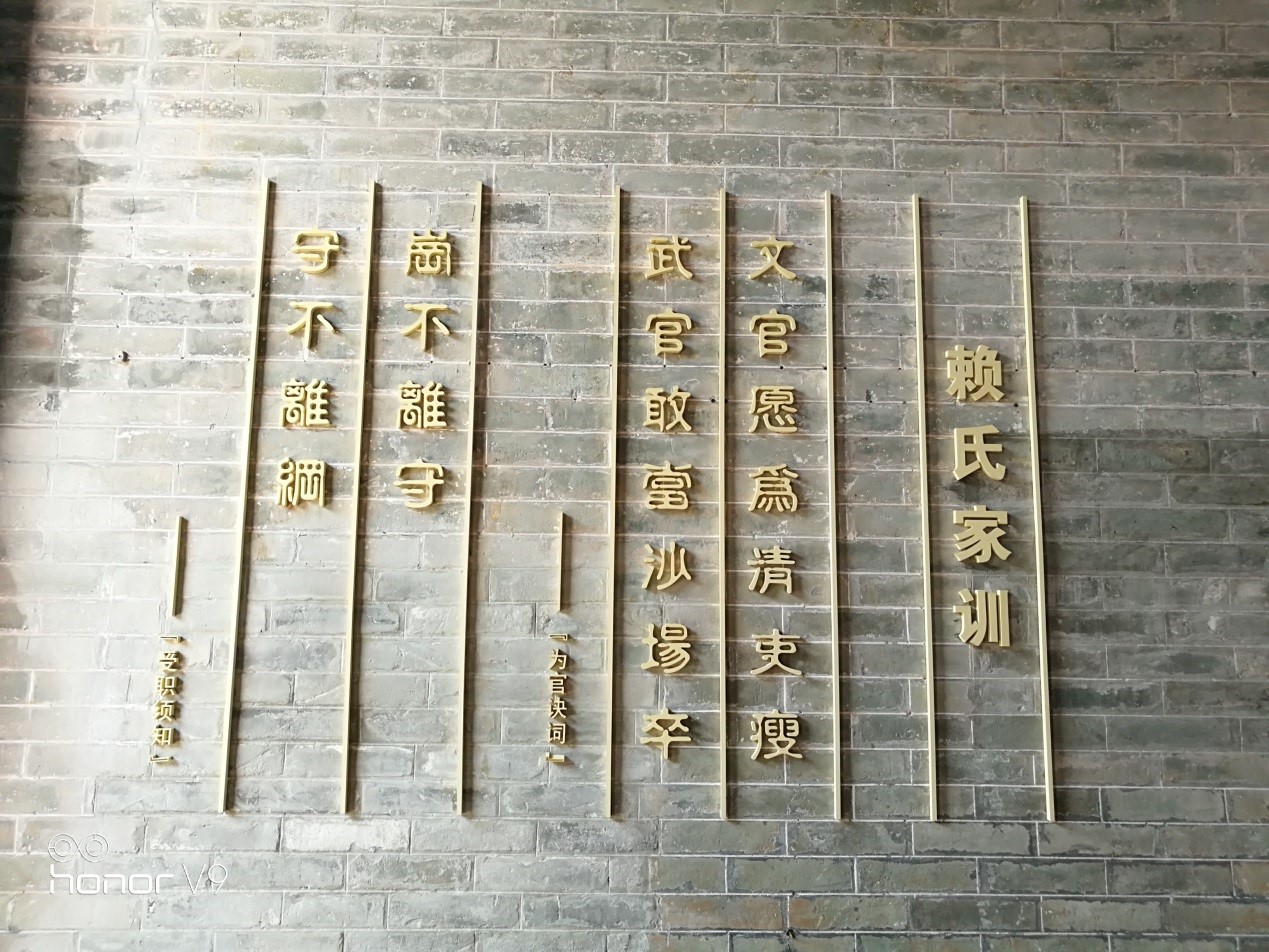 赖氏家训
文官愿爲清吏瘦
武官敢當沙場卒
『为官诀词』
崗不離守
守不離綱
『受职须知』
honor V9